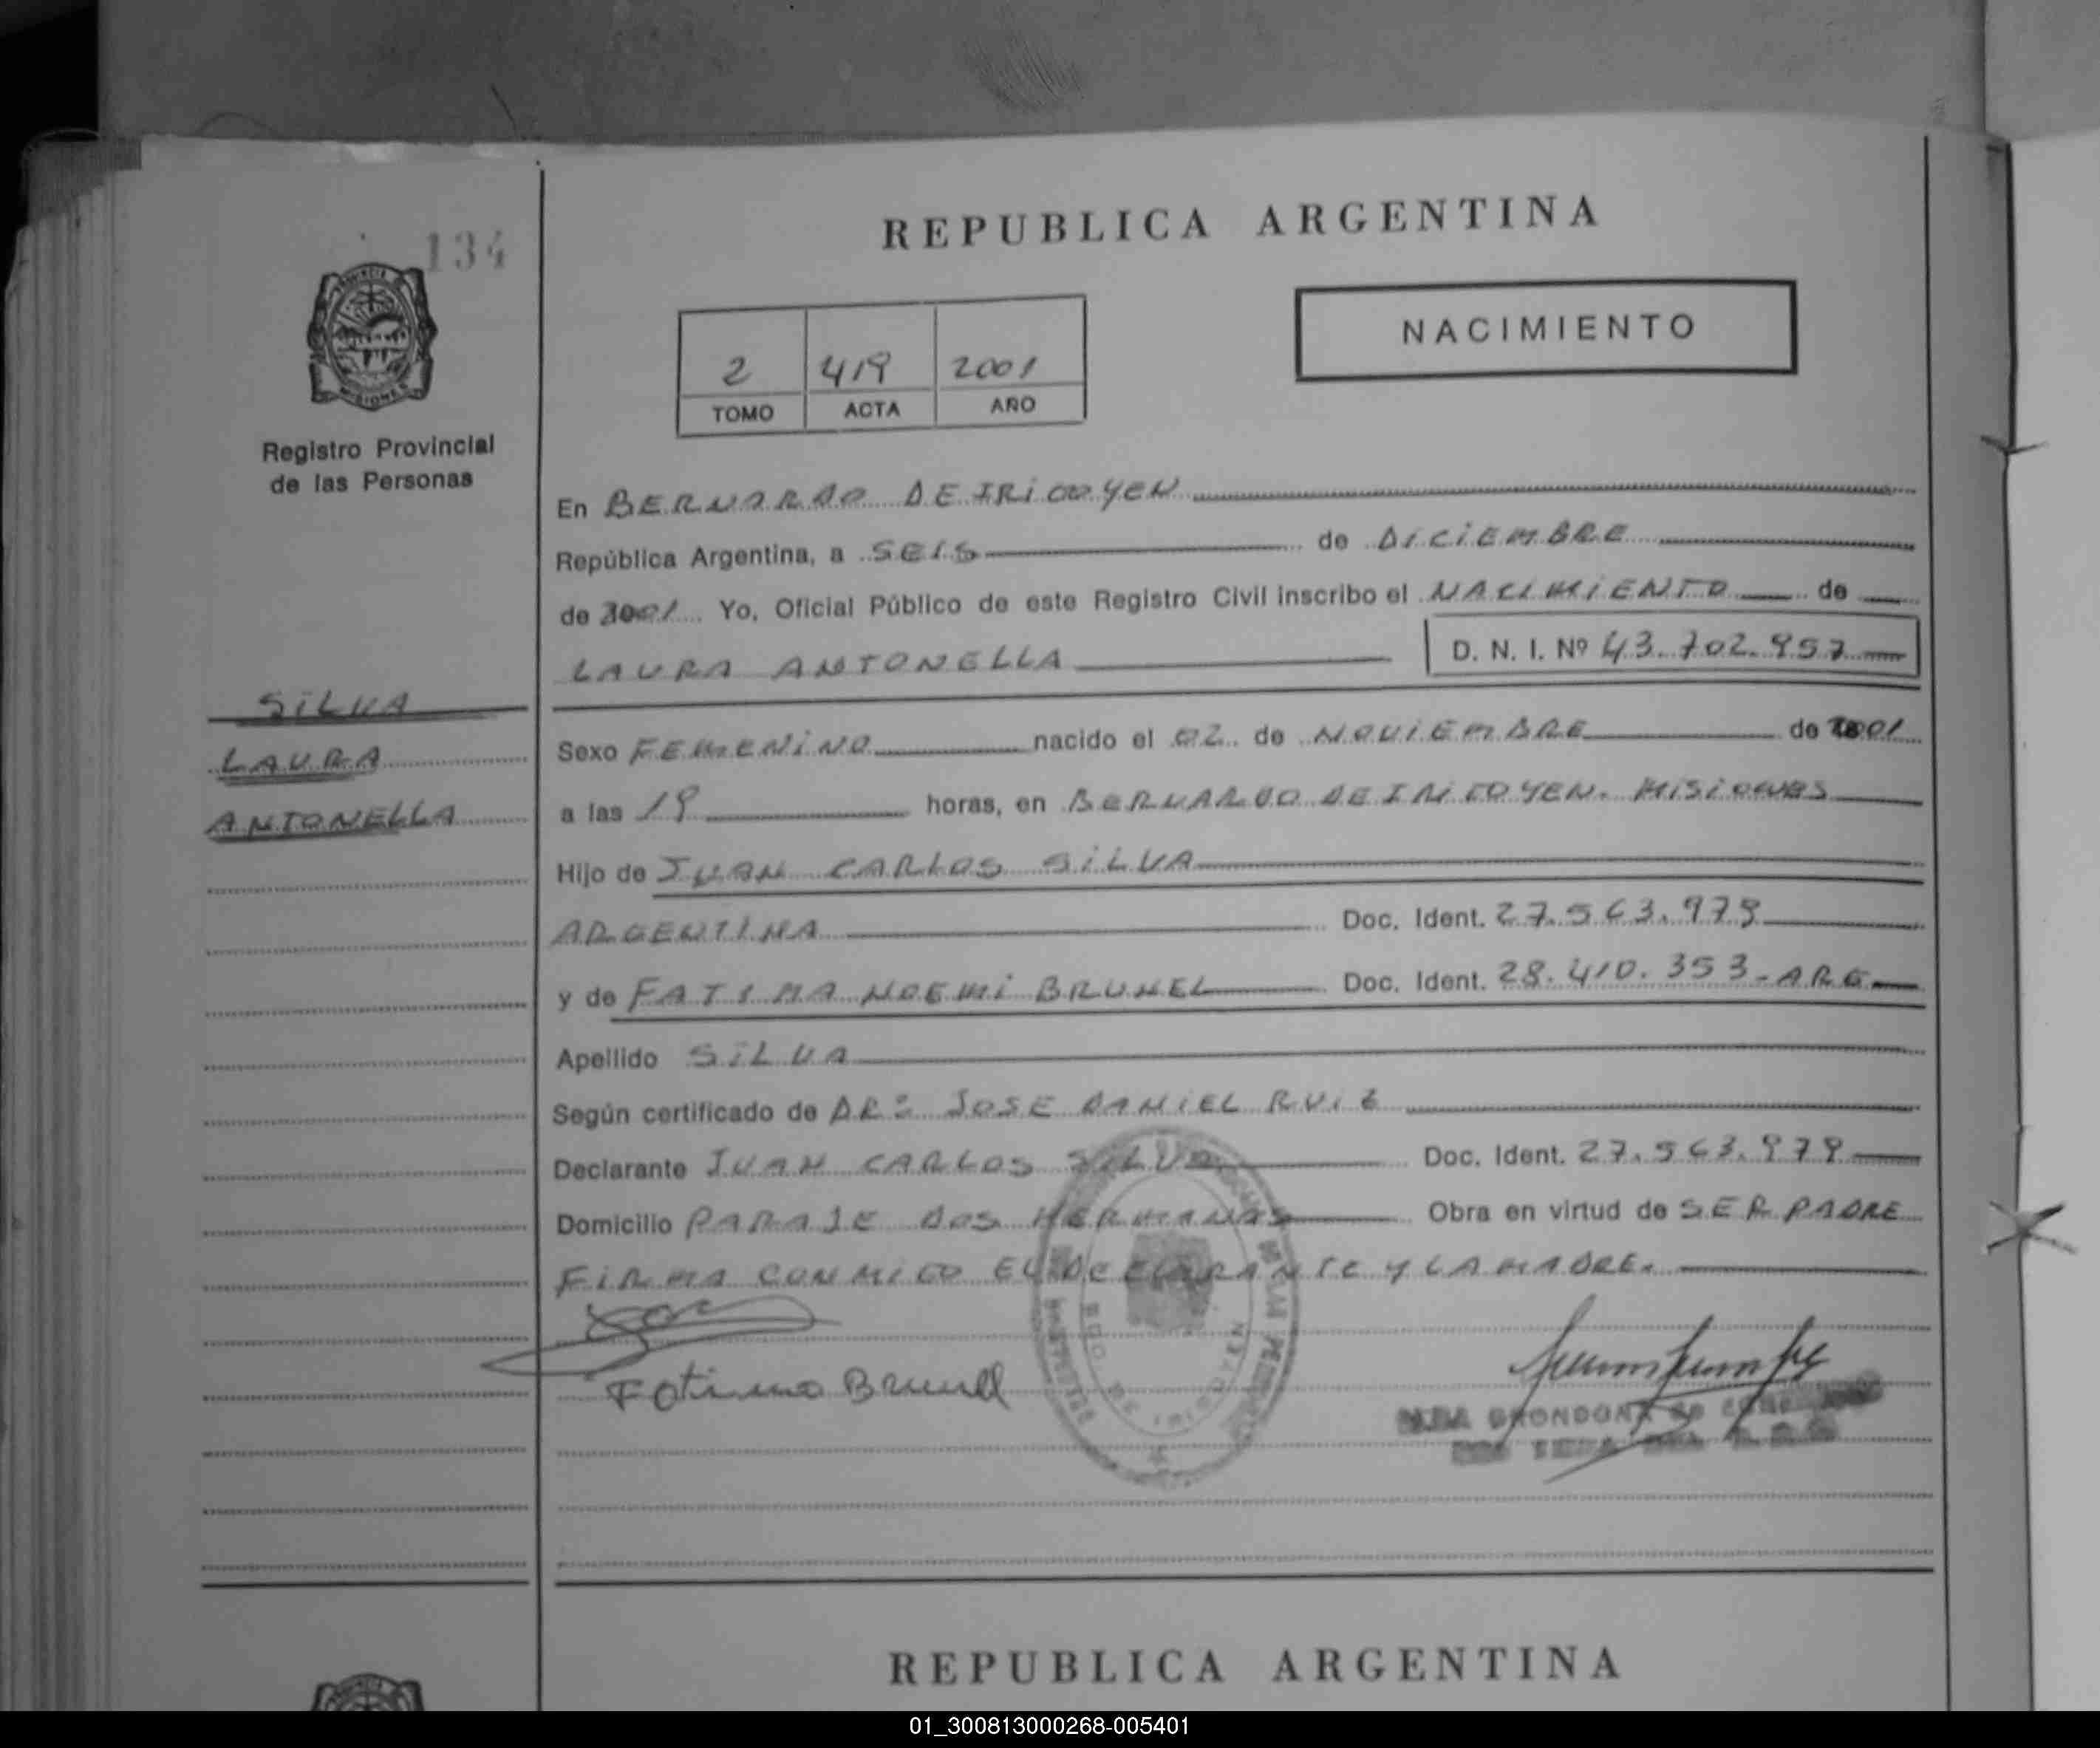 134
REPUBLICA ARGENTINA
NACIMIENTO
2 419 2001
TOMO ACTA AÑO
Registro Provincial
de las Personas
En BERNARDO DE IRIGOYEN
República Argentina, a SEIS de DICIEMBRE
de 2001 Yo, Oficial Público de este Registro Civil inscribo el NACIMIENTO de
LAURA ANTONELLA D. N. I. Nº 43.702.957
SILVA
LAURA
ANTONELLA
Sexo FEMENINO nacido el 02 de NOVIEMBRE de 2001
a las 19 horas, en BERNARDO DE IRIGOYEN. MISIONES
Hijo de JUAN CARLOS SILVA
ARGENTINA Doc. Ident. 27.563.979
y de FATIMA NOEMI BRUNEL Doc. Ident. 28.410.353-ARG
Apellido SILVA
Según certificado de DR: JOSE DANIEL RUIZ
Declarante JUAN CARLOS SILVA Doc. Ident. 27.563.979
Domicilio PARAJE DOS HERMANAS Obra en virtud de SER PADRE
FIRMA CONMIGO EL DECLARANTE Y LA MADRE.
Fatima Brunel
REPUBLICA ARGENTINA
01_300813000268-005401